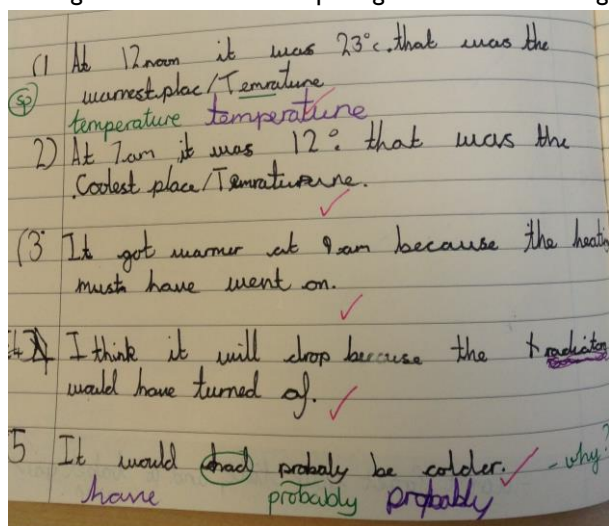 (1 At 12noon it was 23°c.that was the
warmest.plac/Temrature
sp
temperature temperature
2) At 7am it was 12° that was the
.Coolest place/Temraturerne.
(3 It got warmer at 9am because the heatin
must have went on.
I think it will drop because the radiator
would have turned of.
5 It would had probaly be colder. - why?
have probably probably